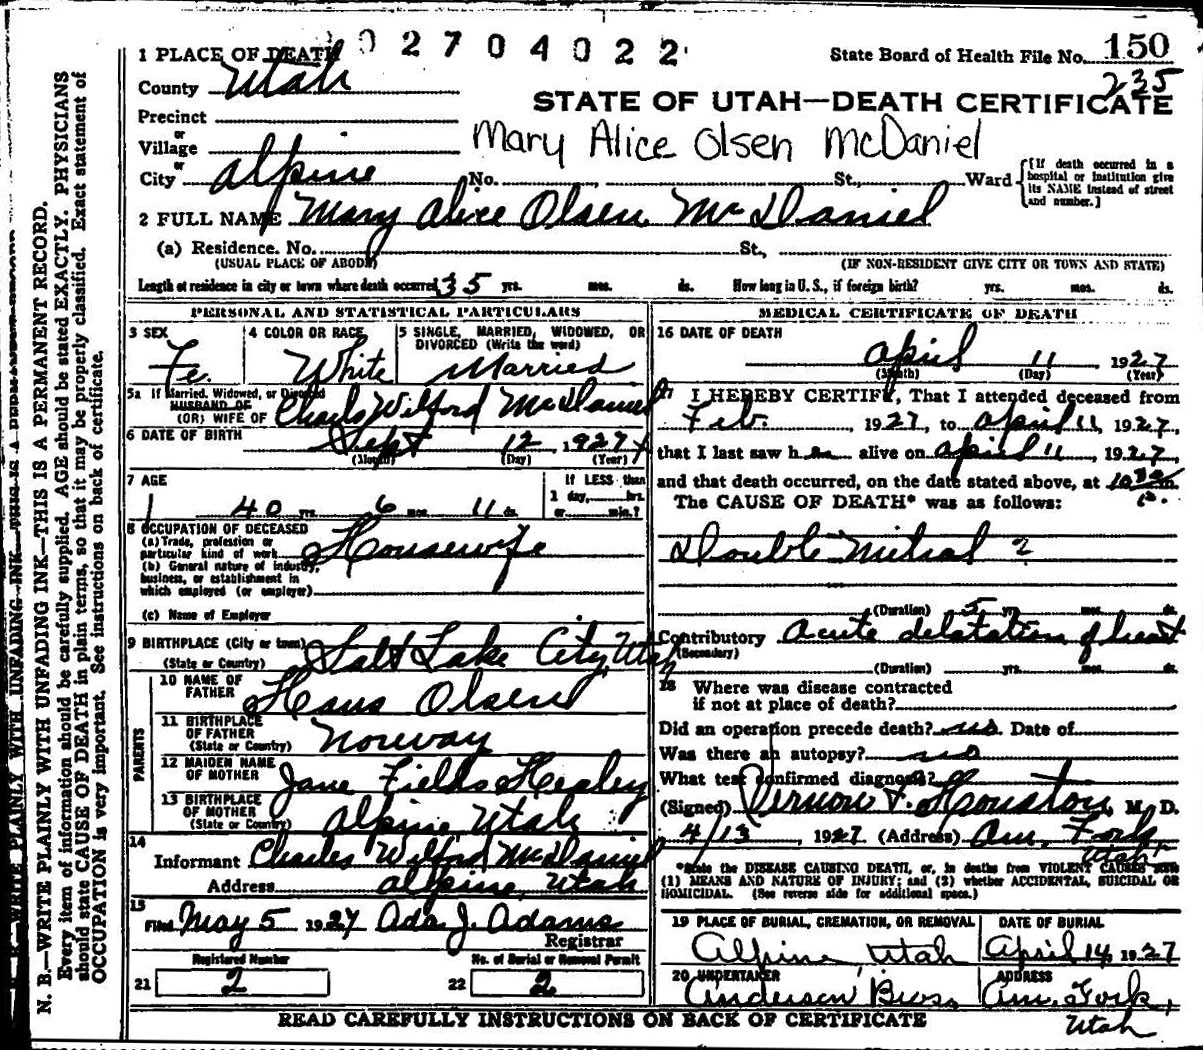 0 2 7 0 4 0 2 2
1 PLACE OF DEATH
State Board of Health File No. 150
235
County Utah
STATE OF UTAH—DEATH CERTIFICATE
Precinct
or
Village
Mary Alice Olsen McDaniel
or
City Alpine No. St., Ward
[If death occurred in a hospital or institution give its NAME instead of street and number.]
2 FULL NAME Mary Alice Olsen McDaniel
(a) Residence. No. St.,
(USUAL PLACE OF ABODE) (IF NON-RESIDENT GIVE CITY OR TOWN AND STATE)
Length of residence in city or town where death occurred 35 yrs. mos. ds. How long in U. S., if foreign birth? yrs. mos. ds.
PERSONAL AND STATISTICAL PARTICULARS
3 SEX
Fe.
4 COLOR OR RACE
White
5 SINGLE, MARRIED, WIDOWED, OR
DIVORCED (Write the word)
Married
5a If Married, Widowed, or Divorced
HUSBAND OF
(OR) WIFE OF Charls Wilford McDaniel
6 DATE OF BIRTH
Sept 12, 1927
(Month) (Day) (Year)
7 AGE
40 yrs. 6 mos. 11 ds.
If LESS than
1 day, hrs.
or min.?
8 OCCUPATION OF DECEASED
(a) Trade, profession or
particular kind of work Housewife
(b) General nature of industry,
business, or establishment in
which employed (or employer)
(c) Name of Employer
9 BIRTHPLACE (City or town)
(State or Country) Salt Lake City, Utah
PARENTS
10 NAME OF
FATHER Hans Olsen
11 BIRTHPLACE
OF FATHER
(State or Country) Norway
12 MAIDEN NAME
OF MOTHER Jane Fields Healey
13 BIRTHPLACE
OF MOTHER
(State or Country) Alpine Utah
14
Informant Charles Wilford McDaniel
Address Alpine, Utah
15
Filed May 5 1927 Ada J. Adams
Registrar
Registered Number
21 2
No. of Burial or Removal Permit
22 2
MEDICAL CERTIFICATE OF DEATH
16 DATE OF DEATH
April 11 1927
(Month) (Day) (Year)
17 I HEREBY CERTIFY, That I attended deceased from
Feb. , 1927, to April 11, 1927,
that I last saw h alive on April 11, 1927,
and that death occurred, on the date stated above, at
The CAUSE OF DEATH* was as follows:
Double Mitral ?
(Duration) 5 yrs. mos. ds.
Contributory Acute delatation of heart
(Secondary)
(Duration) yrs. mos. ds.
18 Where was disease contracted
if not at place of death?
Did an operation precede death? no. Date of
Was there an autopsy? no
What test confirmed diagnosis?
(Signed) Vernon F. Houston, M. D.
4/13 1927. (Address) Am. Fork
Utah
*State the DISEASE CAUSING DEATH, or, in deaths from VIOLENT CAUSES state
(1) MEANS AND NATURE OF INJURY; and (2) whether ACCIDENTAL, SUICIDAL OR
HOMICIDAL. (See reverse side for additional space.)
19 PLACE OF BURIAL, CREMATION, OR REMOVAL
Alpine, Utah
DATE OF BURIAL
April 14, 1927
20 UNDERTAKER
Anderson Bros.
ADDRESS
Am. Fork,
Utah
READ CAREFULLY INSTRUCTIONS ON BACK OF CERTIFICATE
N. B.—WRITE PLAINLY WITH UNFADING INK—THIS IS A PERMANENT RECORD.
Every item of information should be carefully supplied. AGE should be stated EXACTLY. PHYSICIANS
should state CAUSE OF DEATH in plain terms, so that it may be properly classified. Exact statement of
OCCUPATION is very important. See instructions on back of certificate.